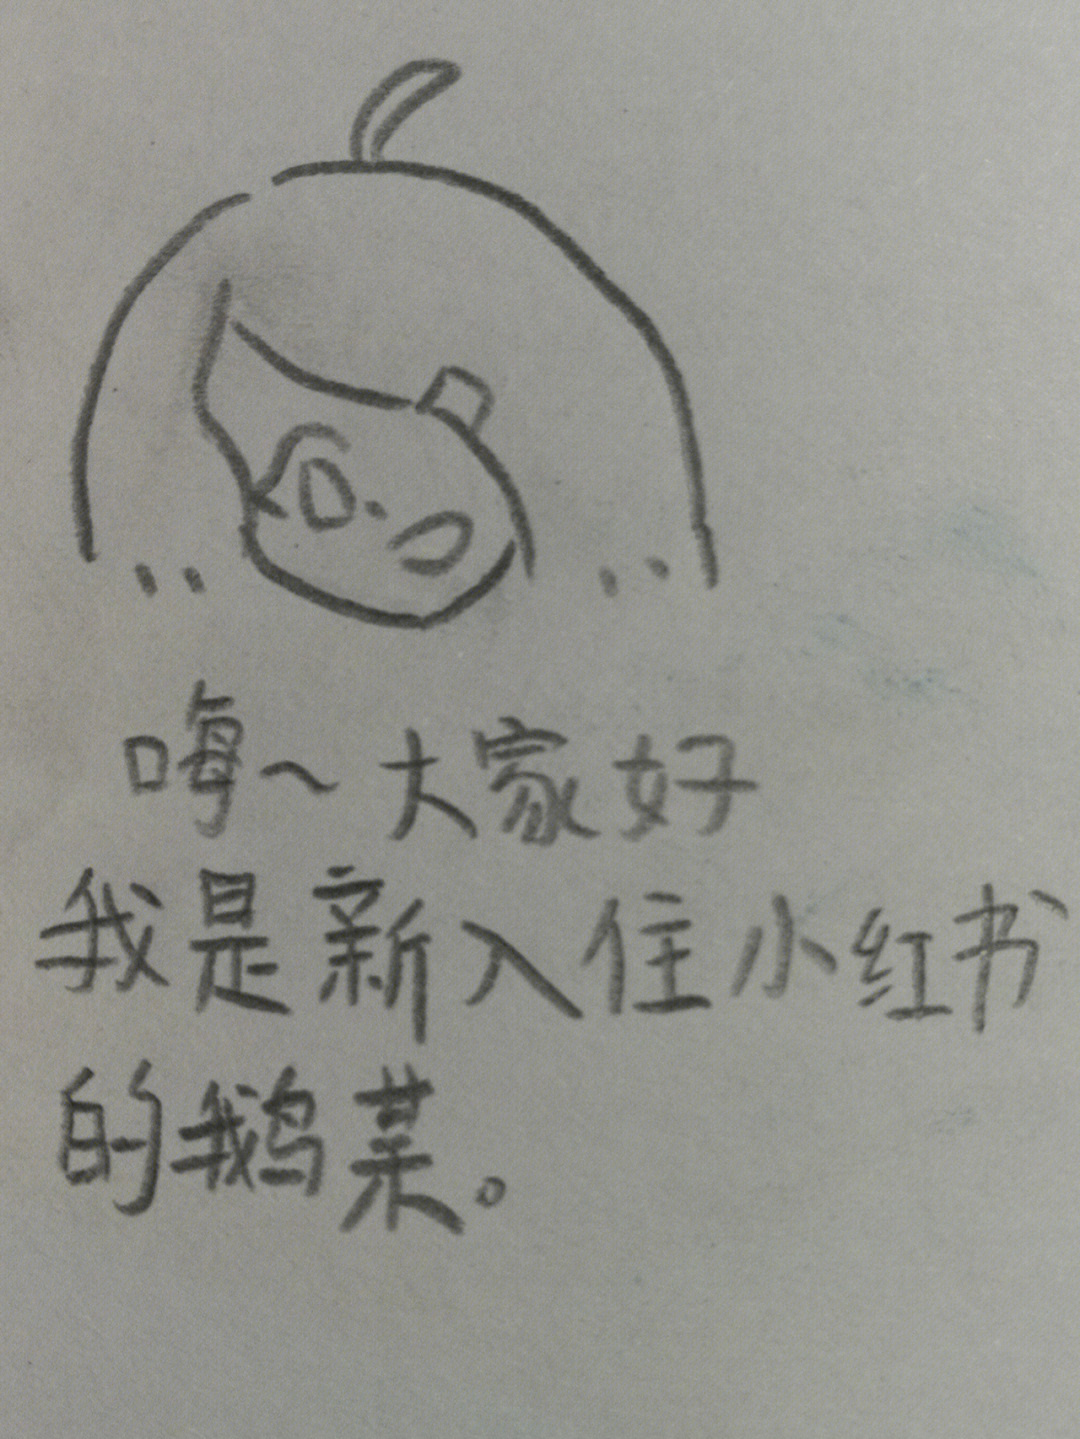 嗨~大家好
我是新入住小红书
的鹅菜。